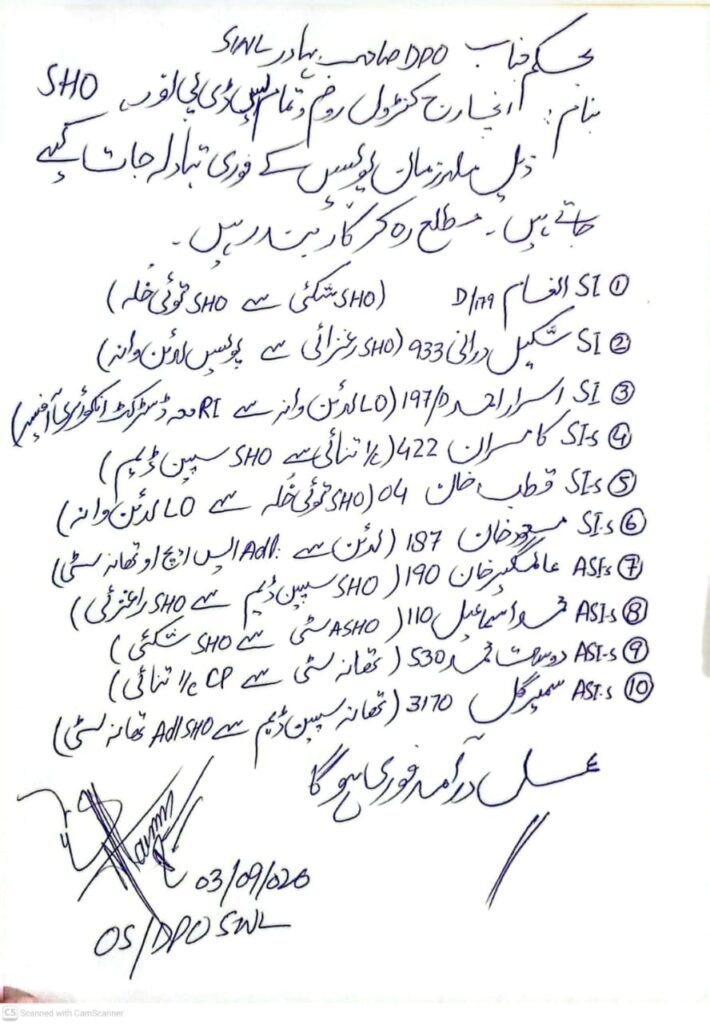 بحکم جناب DPO صاحب بہادر SWL
بنام: انچارج کنٹرول روم و تمام ایس ڈی پی اوز، SHO
ذیل ملازمان پولیس کے فوری تبادلہ جات کیے
جاتے ہیں۔ مطلع رہ کر کاربند رہیں۔
① SI انعام D/179 (SHO شکئی سے SHO توئی خُلہ)
② SI شکیل درانی 933 (SHO رغزائی سے پولیس لائن وانہ)
③ SI اسرار احمد 197/D (LO لائن وانہ سے RI معہ ڈسٹرکٹ انکوائری آفیسر)
④ SI-s کامران 422 (I/C تنائی سے SHO سپین ڈیم)
⑤ SI-s قطب خان 04 (SHO توئی خُلہ سے LO لائن وانہ)
⑥ SI-s مسعود خان 187 (لائن سے Adl. ایس ایچ او تھانہ سٹی)
⑦ ASI-s عالمگیر خان 190 (SHO سپین ڈیم سے SHO راغزئی)
⑧ ASI-s محمد اسماعیل 110 (ASHO سٹی سے SHO شکئی)
⑨ ASI-s دوست محمد 530 (تھانہ سٹی سے I/C CP تنائی)
⑩ ASI-s سمیر گل 3170 (تھانہ سپین ڈیم سے Adl SHO تھانہ سٹی)
عمل درآمد فوری ہوگا
03/09/020
OS/DPO SWL
CS Scanned with CamScanner